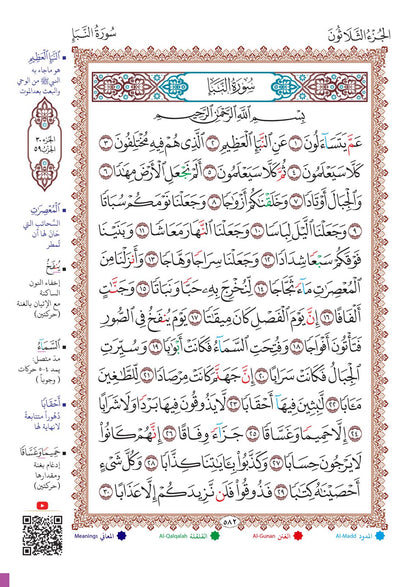 الجُزءُ الثَّلَاثُونَ
سُورَةُ النَّبَإِ
سُورَةُ النَّبَإِ
بِسْمِ اللَّهِ الرَّحْمَٰنِ الرَّحِيمِ
عَمَّ يَتَسَآءَلُونَ ١ عَنِ النَّبَإِ الْعَظِيمِ ٢ الَّذِي هُمْ فِيهِ مُخْتَلِفُونَ ٣
كَلَّا سَيَعْلَمُونَ ٤ ثُمَّ كَلَّا سَيَعْلَمُونَ ٥ أَلَمْ نَجْعَلِ الْأَرْضَ مِهَٰدًا ٦
وَالْجِبَالَ أَوْتَادًا ٧ وَخَلَقْنَٰكُمْ أَزْوَٰجًا ٨ وَجَعَلْنَا نَوْمَكُمْ سُبَاتًا
٩ وَجَعَلْنَا الَّيْلَ لِبَاسًا ١٠ وَجَعَلْنَا النَّهَارَ مَعَاشًا ١١ وَبَنَيْنَا
فَوْقَكُمْ سَبْعًا شِدَادًا ١٢ وَجَعَلْنَا سِرَاجًا وَهَّاجًا ١٣ وَأَنزَلْنَا مِنَ
الْمُعْصِرَٰتِ مَآءً ثَجَّاجًا ١٤ لِّنُخْرِجَ بِهِۦ حَبًّا وَنَبَاتًا ١٥ وَجَنَّٰتٍ
أَلْفَافًا ١٦ إِنَّ يَوْمَ الْفَصْلِ كَانَ مِيقَٰتًا ١٧ يَوْمَ يُنفَخُ فِي الصُّورِ
فَتَأْتُونَ أَفْوَاجًا ١٨ وَفُتِحَتِ السَّمَآءُ فَكَانَتْ أَبْوَٰبًا ١٩ وَسُيِّرَتِ
الْجِبَالُ فَكَانَتْ سَرَابًا ٢٠ إِنَّ جَهَنَّمَ كَانَتْ مِرْصَادًا ٢١ لِّلطَّٰغِينَ
مَـَٔابًا ٢٢ لَّٰبِثِينَ فِيهَآ أَحْقَابًا ٢٣ لَّا يَذُوقُونَ فِيهَا بَرْدًا وَلَا شَرَابًا
٢٤ إِلَّا حَمِيمًا وَغَسَّاقًا ٢٥ جَزَآءً وِفَاقًا ٢٦ إِنَّهُمْ كَانُوا
لَا يَرْجُونَ حِسَابًا ٢٧ وَكَذَّبُوا بِـَٔايَٰتِنَا كِذَّابًا ٢٨ وَكُلَّ شَيْءٍ
أَحْصَيْنَٰهُ كِتَٰبًا ٢٩ فَذُوقُوا فَلَن نَّزِيدَكُمْ إِلَّا عَذَابًا ٣٠
٥٨٢
النَّبَإِ الْعَظِيمِ
هو ما جاء به
النبي ﷺ من الوحي
والبعث بعد الموت
الجزء ٣٠
الحزب ٥٩
الْمُعْصِرَٰتِ
السَّحائب التي
حَانَ لها أن
تُمطر
يُنفَخُ
إخفاء النون
الساكنة
مع الإتيان بالغنة
(حركتين)
السَّمَآءُ
مدّ متصل:
يمد ٤-٥ حركات
( وجوباً )
أَحْقَابًا
دُهُوراً متتابعة
لا نهاية لها
حَمِيمًا وَغَسَّاقًا
إدغام بغنة
ومقدارها
(حركتين)
المدود Al-Madd
الغنن Al-Gunan
القلقلة Al-Qalqalah
المعاني Meanings